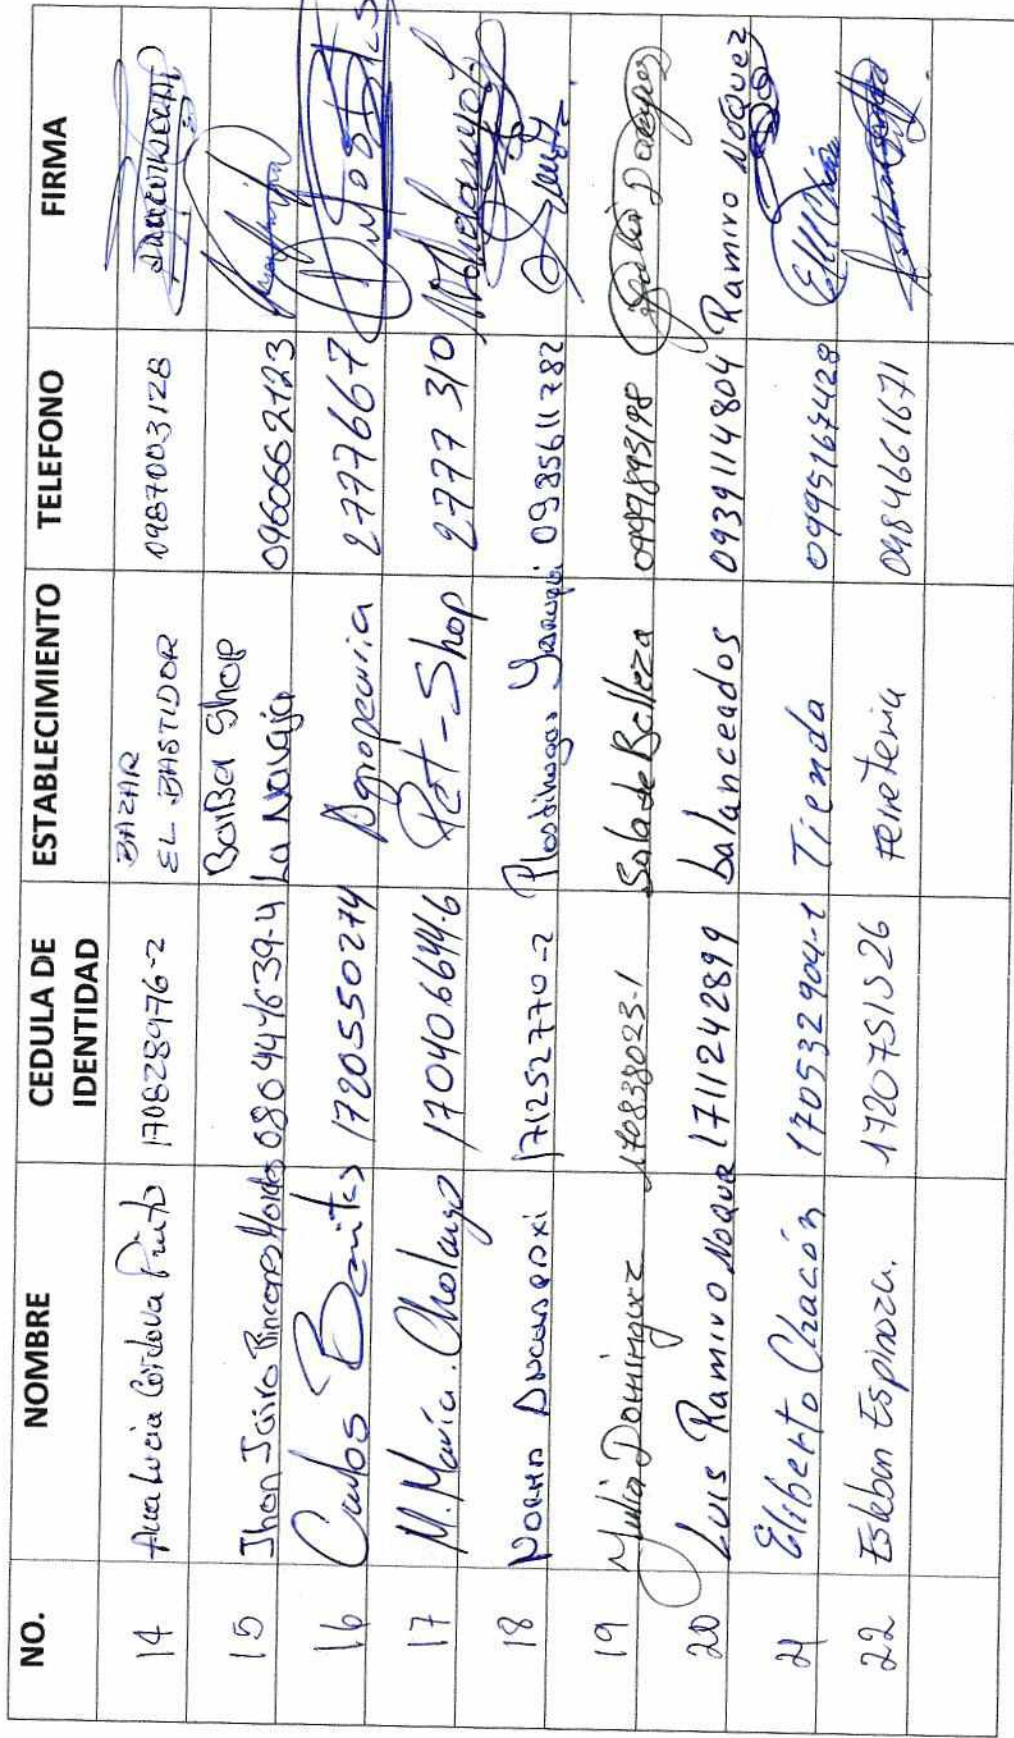 NO. NOMBRE CEDULA DE IDENTIDAD ESTABLECIMIENTO TELEFONO FIRMA
14 Ana Lucia Córdova Prieto 170828976-2 BAZAR EL BASTIDOR 0987003128
15 Jhon Jairo 080447639-4 BarBer Shop La Navaja 0960662123
16 Carlos Benites 1720550274 Agropecuria 2777667
17 M. María. Cholango 170406644-6 Pet-Shop 2777 310
18 NORMA 171252770-2 Plastihogar Yaruqui 0985611782
19 Julia Dominguez 170838023-1 Sala de Belleza
20 Luis Ramiro Noquez 1711242899 balanceados 0939114804 Ramiro Noquez
21 Eliberto Chacón 170532904-1 Tienda 0995167428
22 Esteban Espinoza. 1720751526 Ferreteria 0984661671